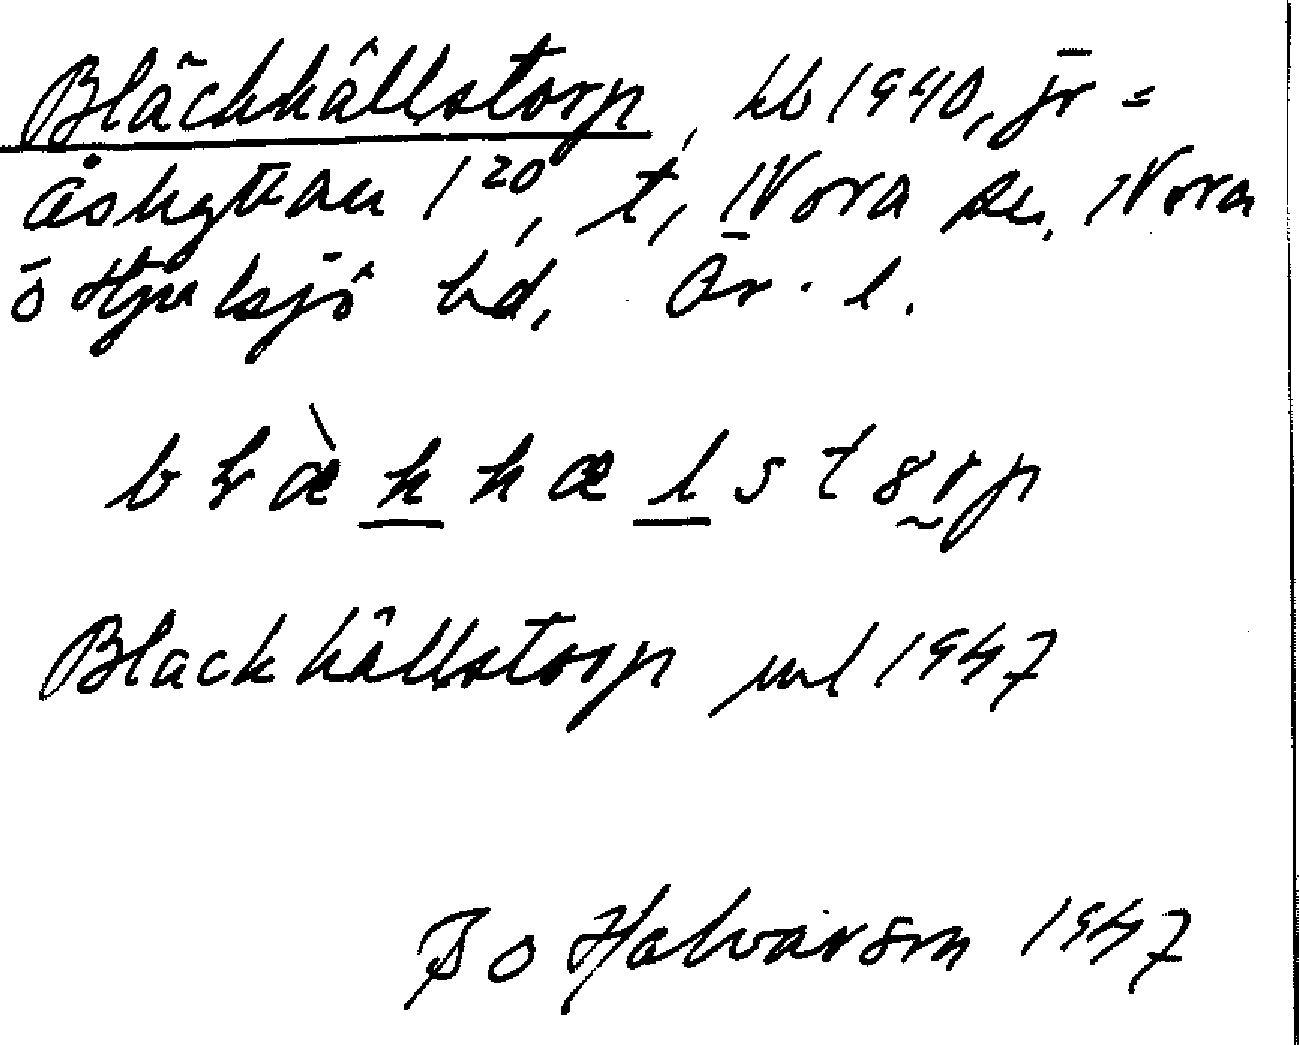 Bläckkällstorp, kb 1940, jr =
Åskyttan 1²⁰, t, Nora sn. Nora
o Hjulsjö hd, Ör. l.
Blackkällstorp uul 1947
Bo Halvarson 1947